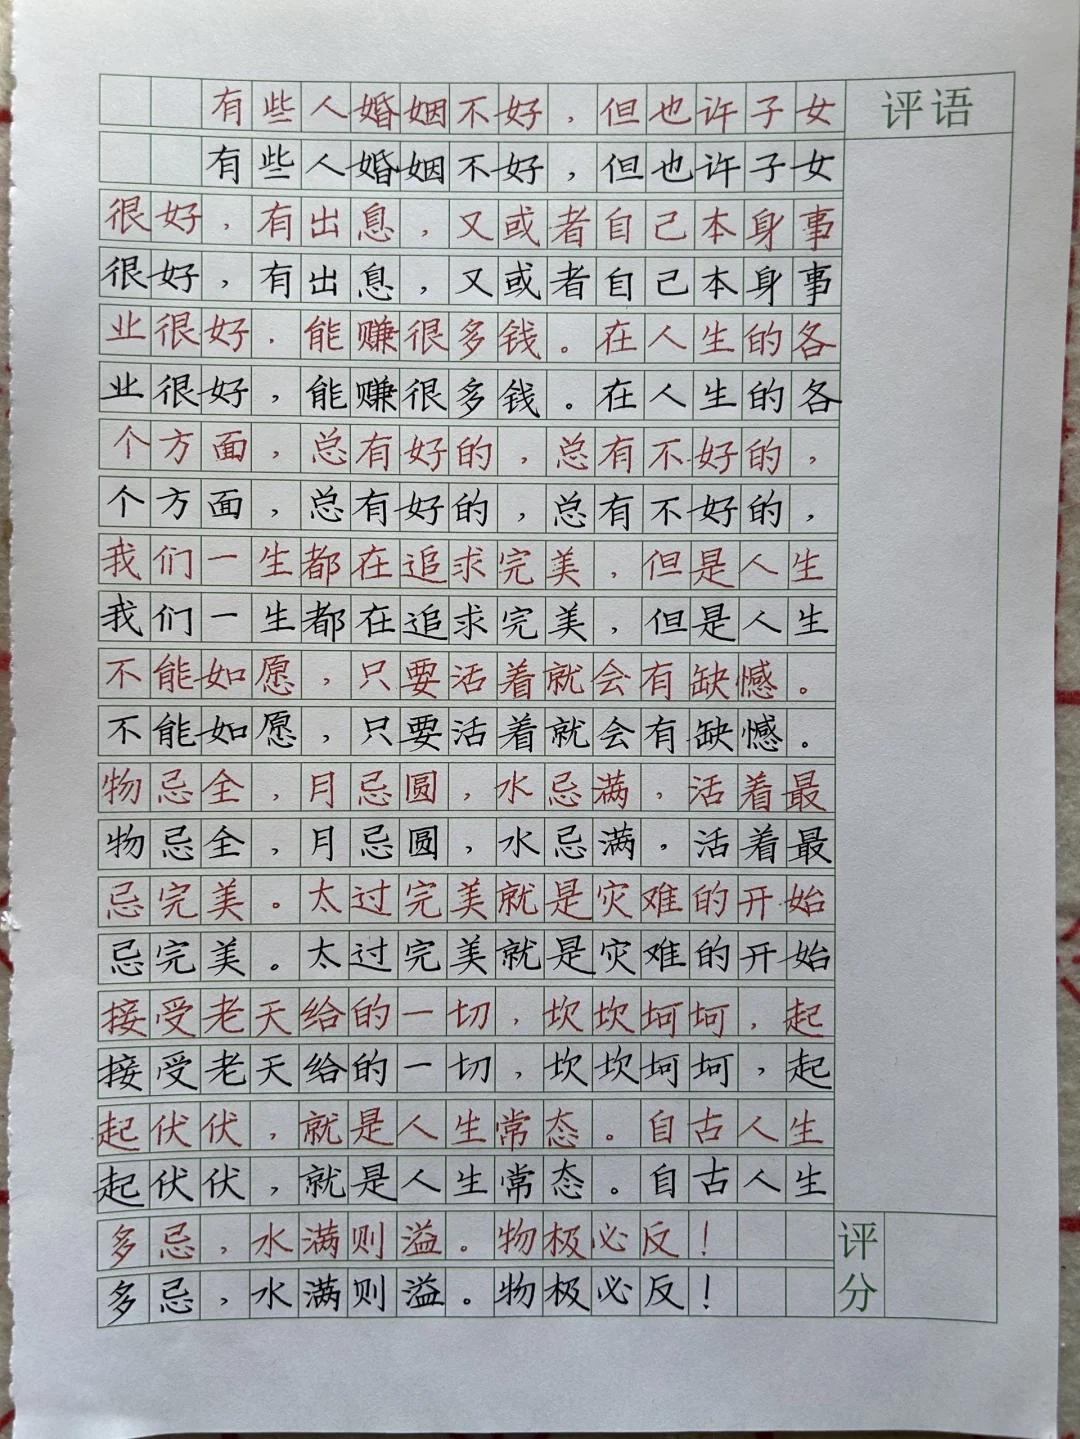 有些人婚姻不好，但也许子女
评语
有些人婚姻不好，但也许子女
很好，有出息，又或者自己本身事
很好，有出息，又或者自己本身事
业很好，能赚很多钱。在人生的各
业很好，能赚很多钱。在人生的各
个方面，总有好的，总有不好的，
个方面，总有好的，总有不好的，
我们一生都在追求完美，但是人生
我们一生都在追求完美，但是人生
不能如愿，只要活着就会有缺憾。
不能如愿，只要活着就会有缺憾。
物忌全，月忌圆，水忌满，活着最
物忌全，月忌圆，水忌满，活着最
忌完美。太过完美就是灾难的开始
忌完美。太过完美就是灾难的开始
接受老天给的一切，坎坎坷坷，起
接受老天给的一切，坎坎坷坷，起
起伏伏，就是人生常态。自古人生
起伏伏，就是人生常态。自古人生
多忌，水满则溢。物极必反！
多忌，水满则溢。物极必反！
评分